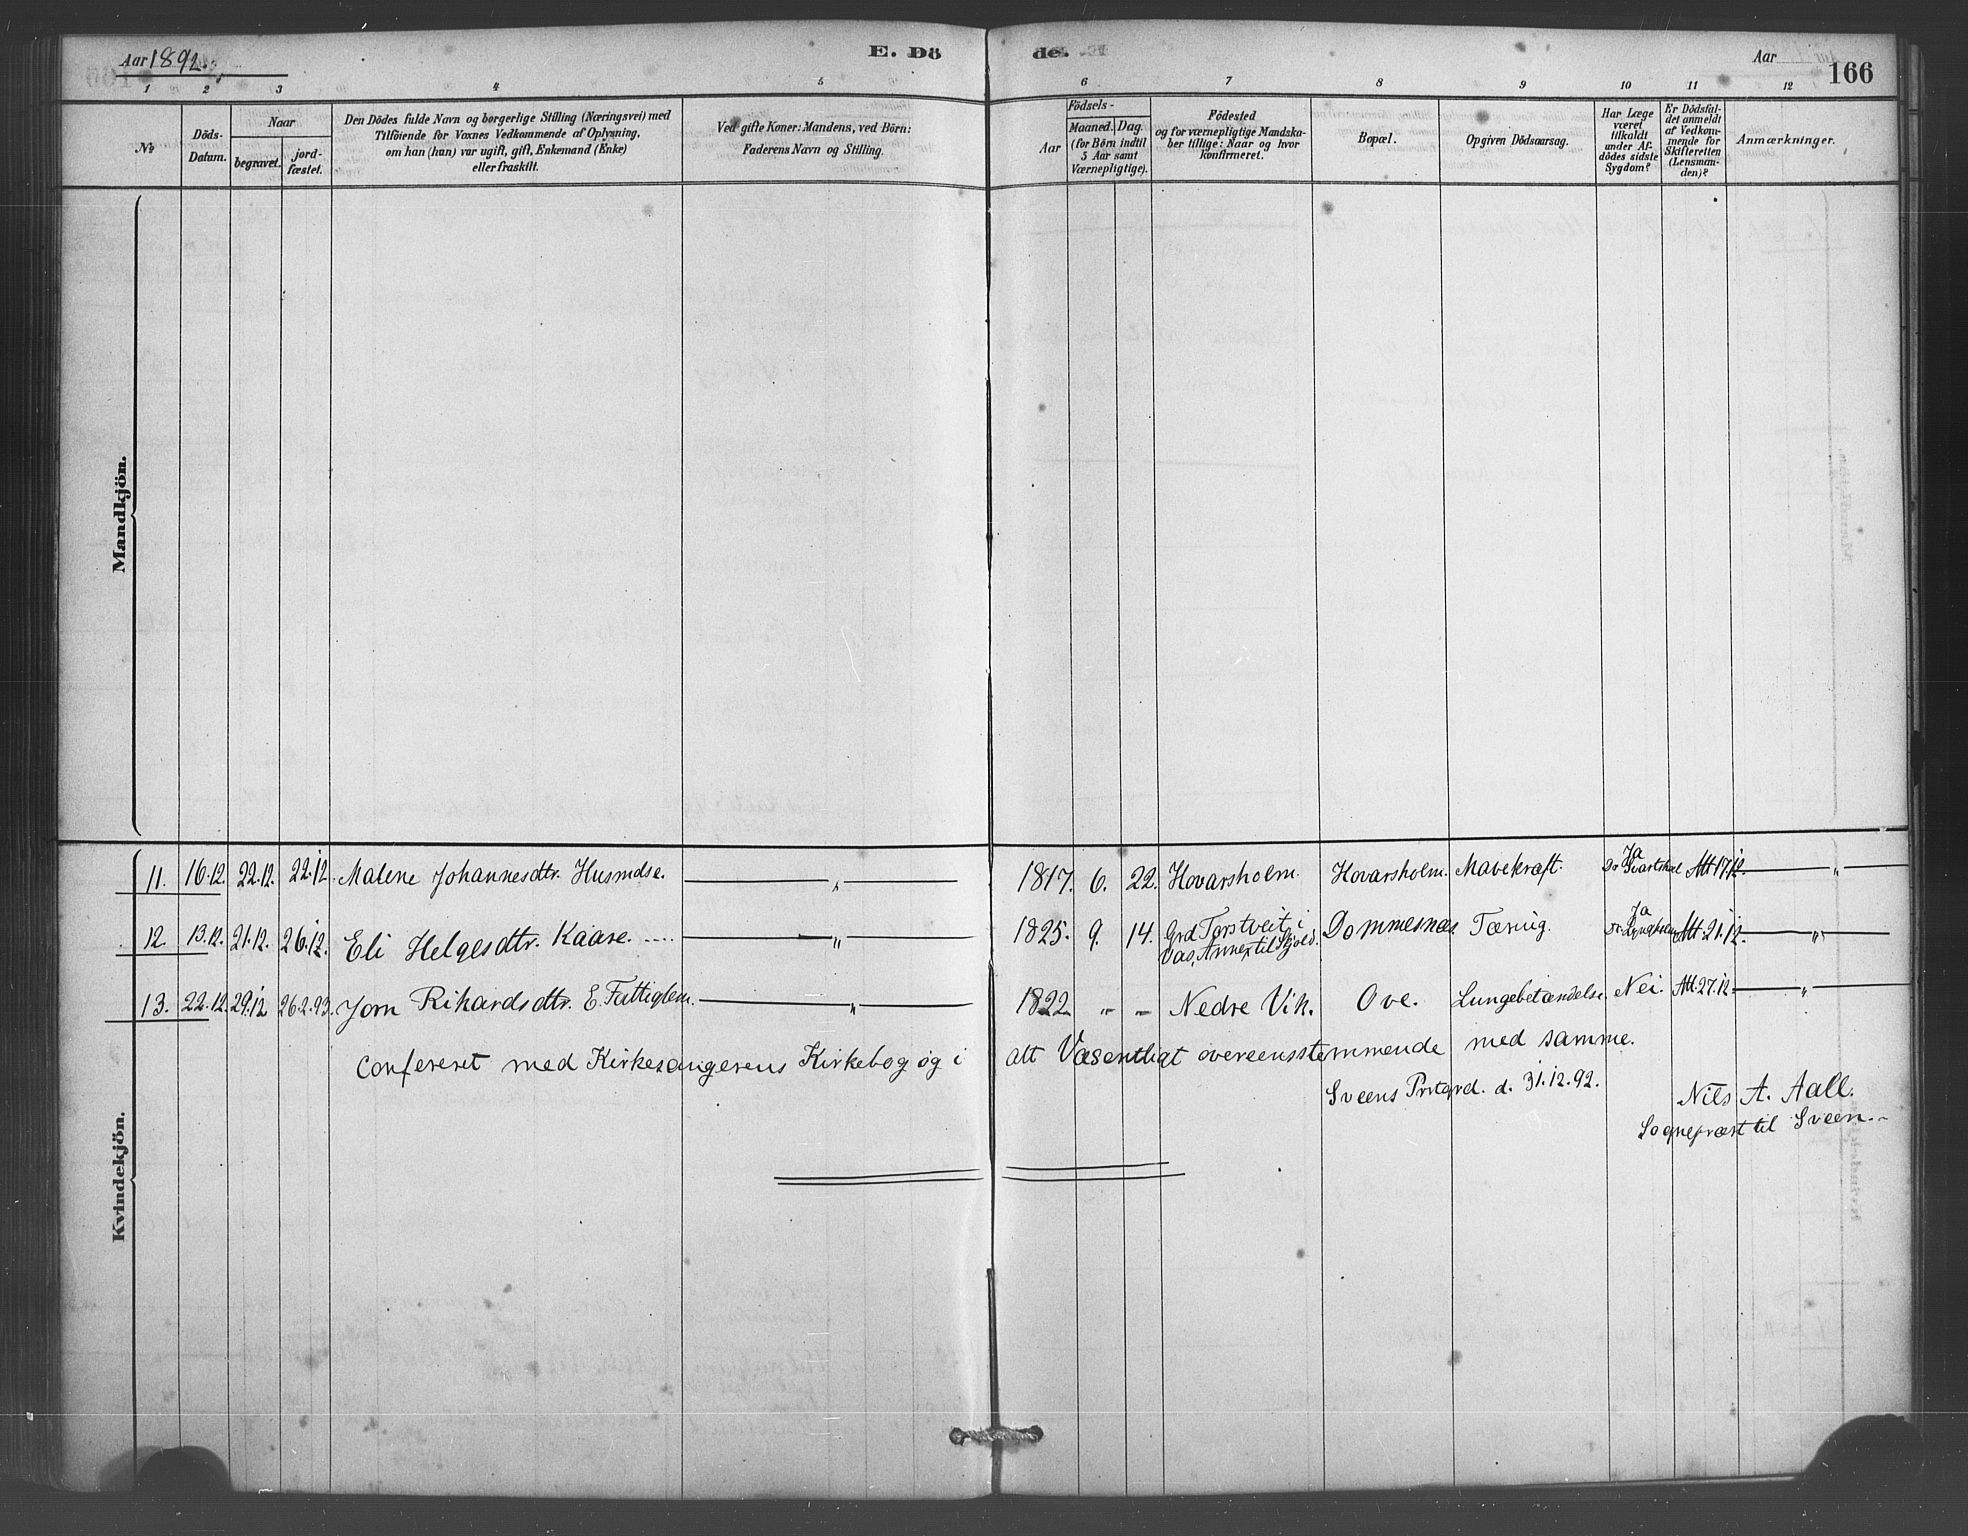 Aar 1892.
E. Dö
de.
Aar
166
1 2 3 4 5 6 7 8 9 10 11 12
No
Döds-
Datum.
Naar
begravet.
jord-
fæstet.
Den Dödes fulde Navn og borgerlige Stilling (Næringsvei) med
Tilföiende for Voxnes Vedkommende af Oplysning,
om han (hun) var ugift, gift, Enkemand (Enke)
eller fraskilt.
Ved gifte Koner: Mandens, ved Börn:
Faderens Navn og Stilling.
Födsels-
Aar
Maaned. Dag.
(for Börn indtil
5 Aar samt
Værnepligtige).
Födested
og for værnepligtige Mandska-
ber tillige: Naar og hvor
konfirmeret.
Bopæl.
Opgiven Dödsaarsag.
Har Læge
været
tilkaldt
under Af-
dödes sidste
Sygdom?
Er Dödsfal-
det anmeldt
af Vedkom-
mende for
Skifteretten
(Lensman-
den)?
Anmærkninger.
Mandkjön.
Kvindekjön.
11. 16.12. 22.12. 22.12. Malene Johannesdtr. Husmdse. „ 1817. 6. 22. Hovarsholm. Hovarsholm. Mavekræft. Ja Dr Svartdal Att 17.12. „
12. 13.12. 21.12. 26.12. Eli Helgesdtr. Kaare. .... „ 1825. 9. 14. Grd Torstveit, i Dommesnæs. Tæring. Ja Att. 21.12. „
Vas, Annex til Skjold.
13. 22.12. 29.12 26.2.93. Jorn Rikardsdtr. E. Fattiglem. „ 1822. „ „ Nedre Vik. Ove. Lungebetændelse. Nei. Att. 27.12. „
Confereret med Kirkesangerens Kirkebog og i alt Væsentligt overeensstemmende med samme.
Sveens Prstgrd. d. 31.12.92.
Nils A. Aall.
Sognepræst til Sveen.